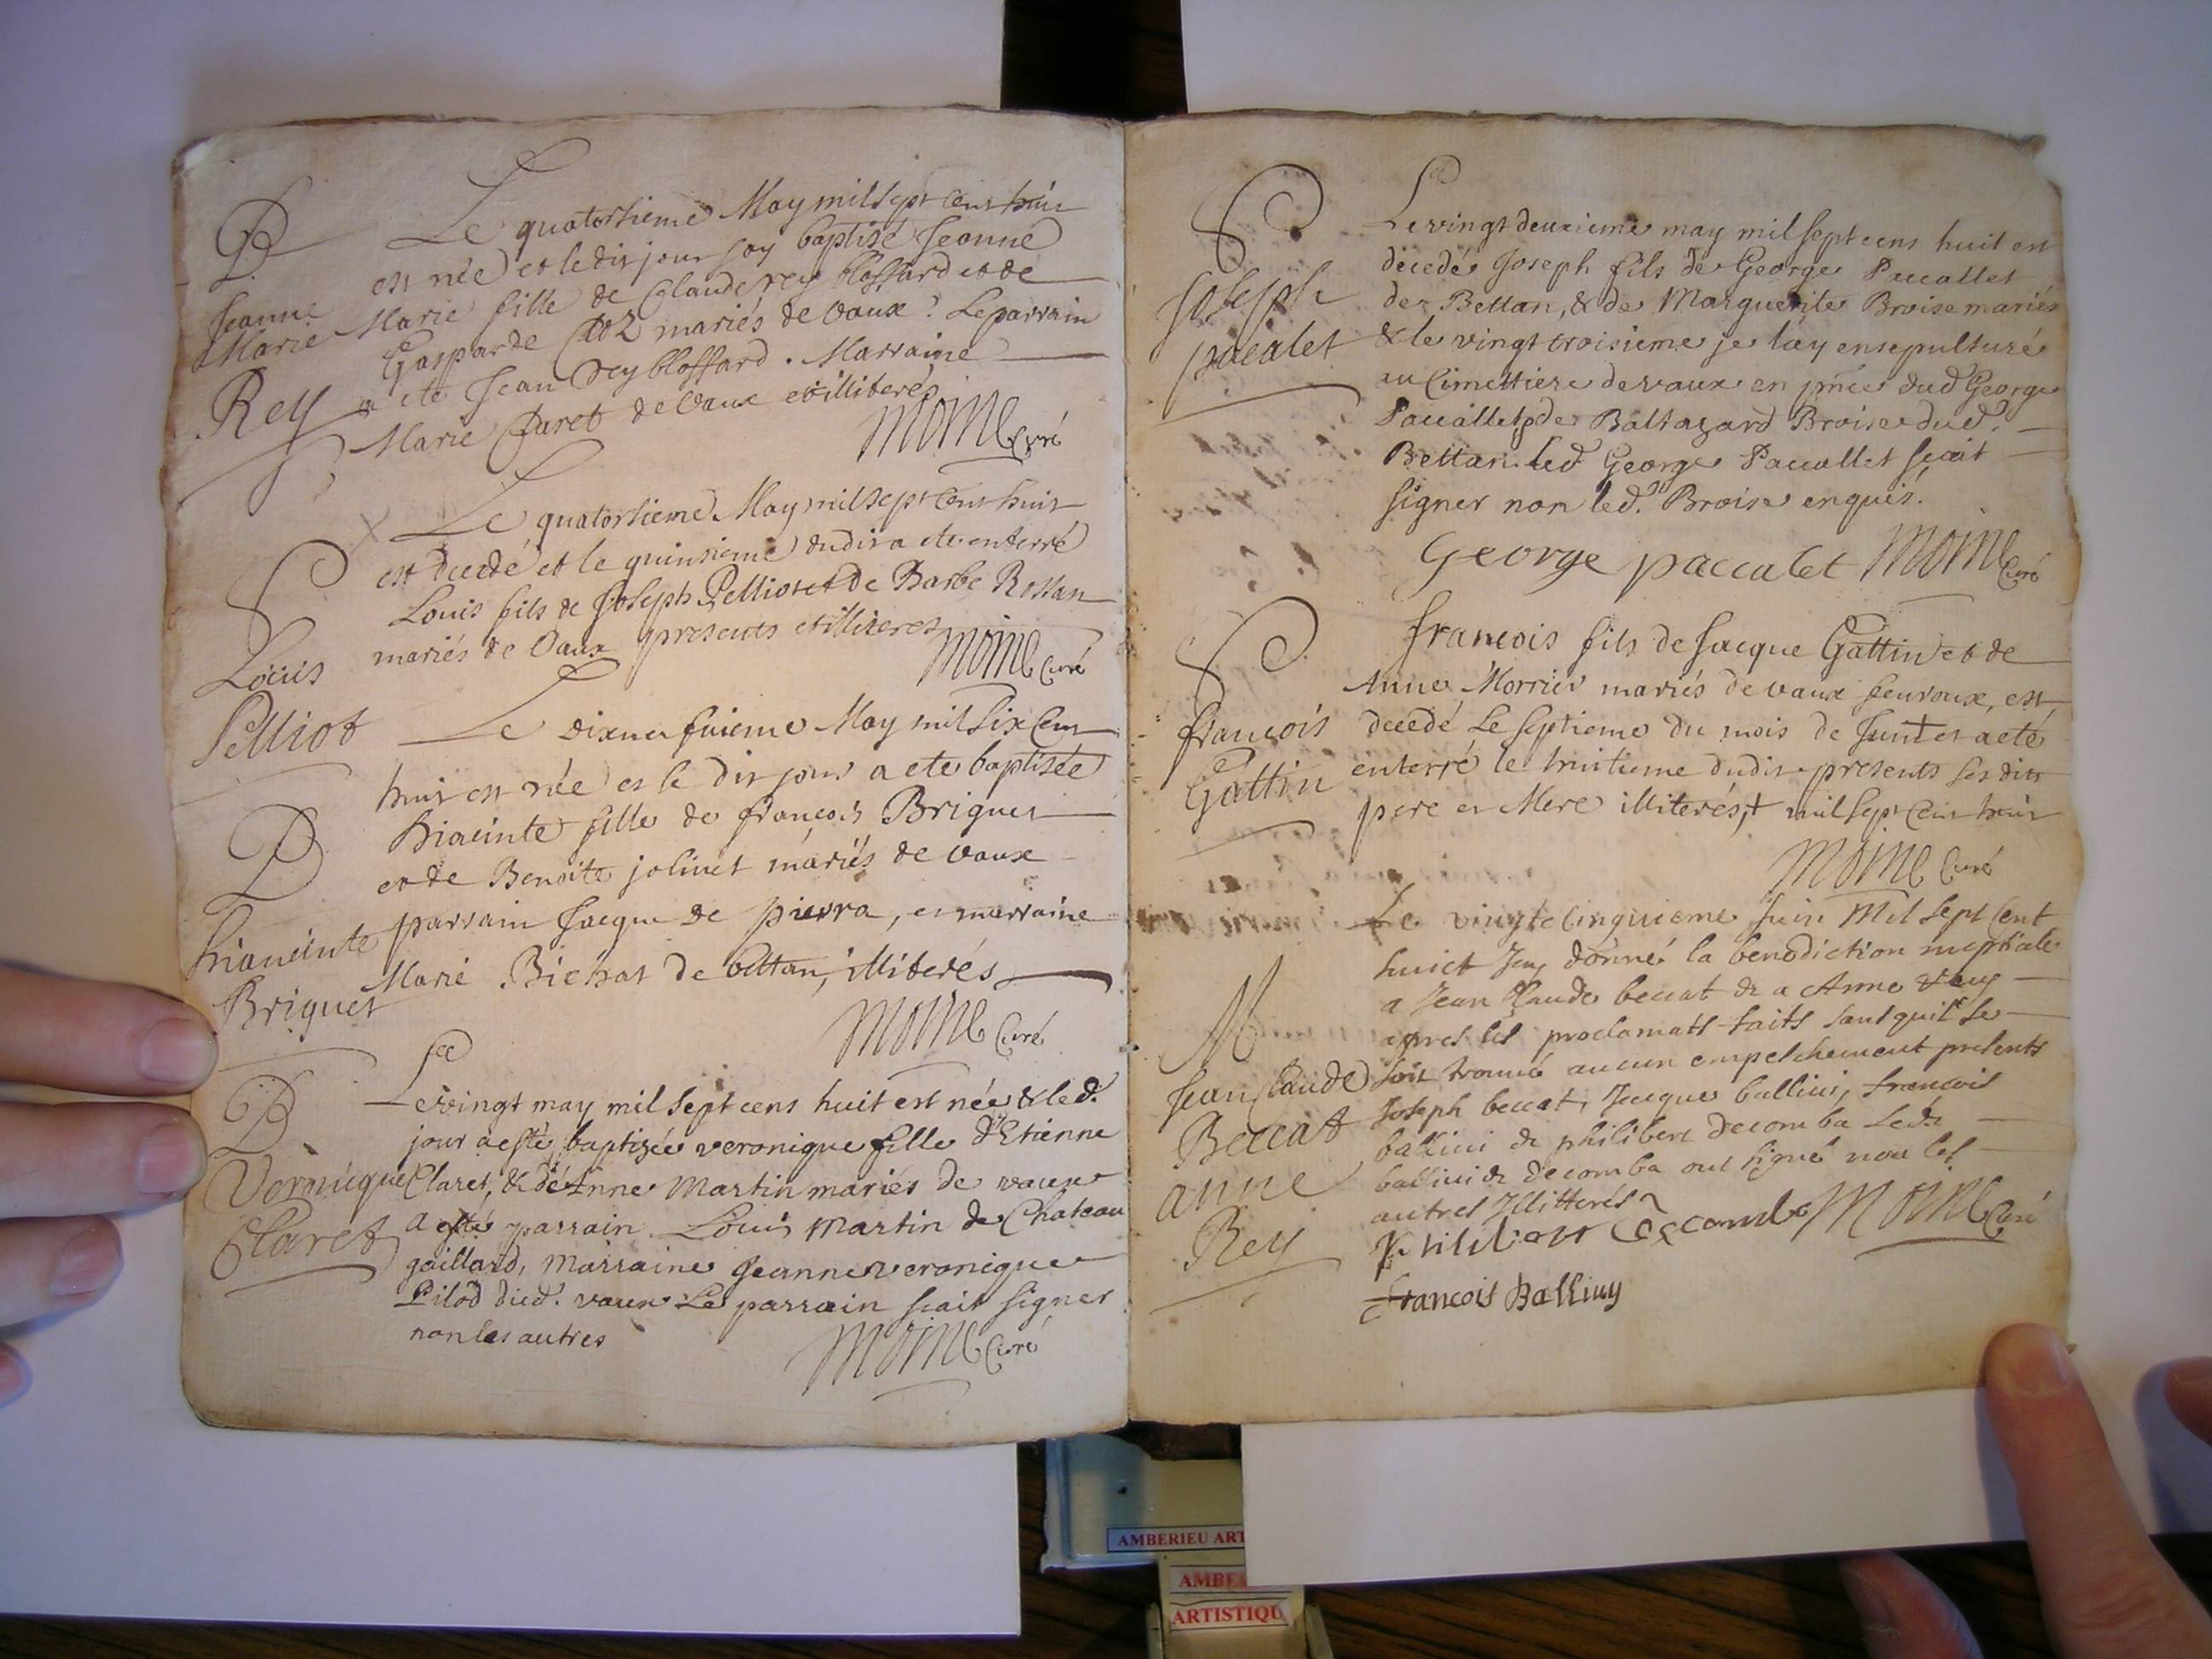 B
Jeanne
Marie
Rey
Le quatorsieme May mil sept cent huit
est née et le dit jour jay baptisé Jeanne
Marie fille de Claude rey blossard et de
Gasparde mariés de Vaux. Le parrain
a ete Jean Rey blossard. Marraine
Marie Claret de Vaux et illiterés
Moine Curé
Louis
Pelliot
Le quatorsieme May mil sept cent huit
est decedé et le quinsieme dudit a ete enterré
Louis fils de Joseph Pelliot et de Barbe Rostan
mariés de Vaux presents et illiteres
Moine Curé
B
hiaeinte
Briguet
Le dixneufuieme May mil six cent
huit est née et le dit jour a ete baptisée
hiaeinte fille de françois Briguet
et de Benoite jolinet mariés de vaux
parrain Jacque de pierra, et marraine
Marie Bichat de bettan, illiterés
Moine Curé
B
Veronique
Claret
Le vingt may mil sept cens huit est née & led.
jour a esté baptizée veronique fille d'Etienne
Claret, & de Anne Martin mariés de vaux
a esté parrain Louis Martin de Chateau
gaillard, marraine Jeanne veronique
Pilod dud. vaux Le parrain scait signer
non les autres
Moine Curé
Joseph
pacalet
Le vingt deuxieme may mil sept cens huit est
décedé Joseph fils de George Paccallet
de Bettan, & de Marguerite Broise mariés
& le vingt troisieme je l'ay ensepulturé
au Cimettiere de vaux en pnce dud George
Paccallet & de Baltazard Broise dud.
Bettan led George Paccallet scait
signer non led. Broise enquis.
George paccalet Moine Curé
françois
Gattin
françois fils de Jacque Gattin et de
Anne Morrier mariés de vaux feuroux, est
decedé Le septieme du mois de Juin + et a eté
enterré le huitieme dudit presents ses dits
pere et Mere illiterés, + mil sept cent huit
Moine Curé
M
Jean Claude
Beccat
anne
Rey
Le vingtcinquieme Juin Mil sept Cent
huict Jay donné la benediction nuptiale
a Jean Claude beccat & a Anne Rey
apres les proclamats faits sans quil se
soit trouué aucun empeschement presents
Joseph beccat, Jacques balliui, francois
balliui & philibert decomba Leds
balliui & decomba ont signé non les
autres Illitterés
Philibert decombe Moine Curé
francois Balliuy
AMBERIEU ART
AMBE
ARTISTIQU